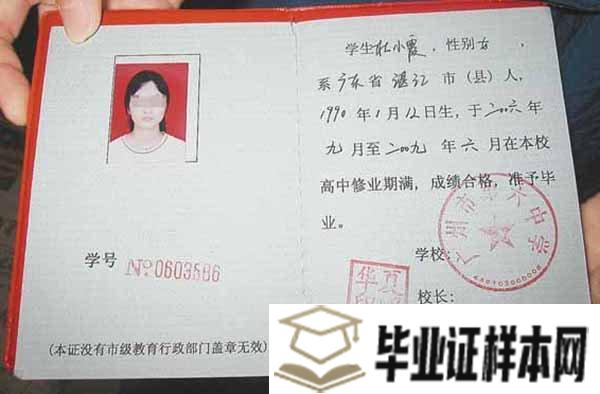 学生杜小霞，性别女，
系广东省湛江市（县）人，
1990年1月12日生，于二00六年
九月至二00九年六月在本校
高中修业期满，成绩合格，准予毕
业。
学校：
校长：
广州市第六中学
4401030000008
华夏
印
学号 No 0603586
(本证没有市级教育行政部门盖章无效)
毕业证样本网